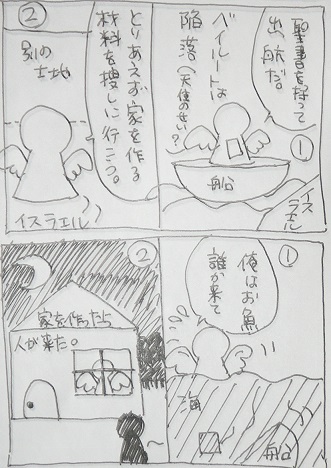 ①
聖書を持って
出航だ。
ベイルートは
陥落(天使のせい?)
船
イスラエル
②
とりあえず家を作る
材料を捜しに行こう。
別の
土地
イスラエル
①
俺はお魚
誰か来て
海
船
②
家を作ったら
人が来た。